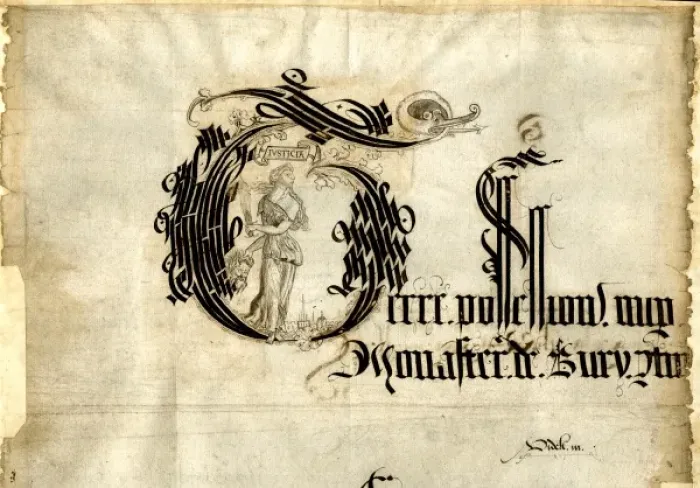 IVSTICIA
Terre. possession. nup
Monaster. de. Bury.